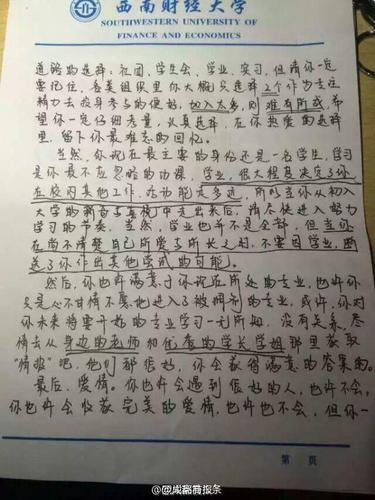 西南财经大学
SOUTHWESTERN UNIVERSITY OF
FINANCE AND ECONOMICS
道路的选择:社团、学生会、学业、实习,但请你一定
要记住,各类组织里你大概只选择2个作为专注
精力去投身青春的便好,加入太多,则难有所成,希
望你一定仔细考量,认真选择,在你热爱的选择
里,留下你最难忘的回忆。
当然,你现在最主要的身份还是一名学生,学习
是你最不应忽略的功课,学业,很大程度决定了你
在校内其他工作、活动能走多远,所以当你从初入
大学的新奇与喜悦中走出来后,请尽快进入努力
学习的节奏。当然,学业也并不是全部,但当你
在尚不清楚自己所爱与所长之时,不要因学业,断
送了你作出其他尝试的可能。
然后,你也许满意于你现在所处的专业,也许你
只是心不甘情不愿地进入了被调剂的专业,或许,你对
你未来将要开始的专业学习一无所知,没有关系,尽
情去从身边的老师和优秀的学长学姐那里获取
“情报”吧,他们都很好,你会获得满意的答案的。
最后,爱情。你也许会遇到很好的人,也许不会,
你也许会收获完美的爱情,也许也不会,但你一
第 页